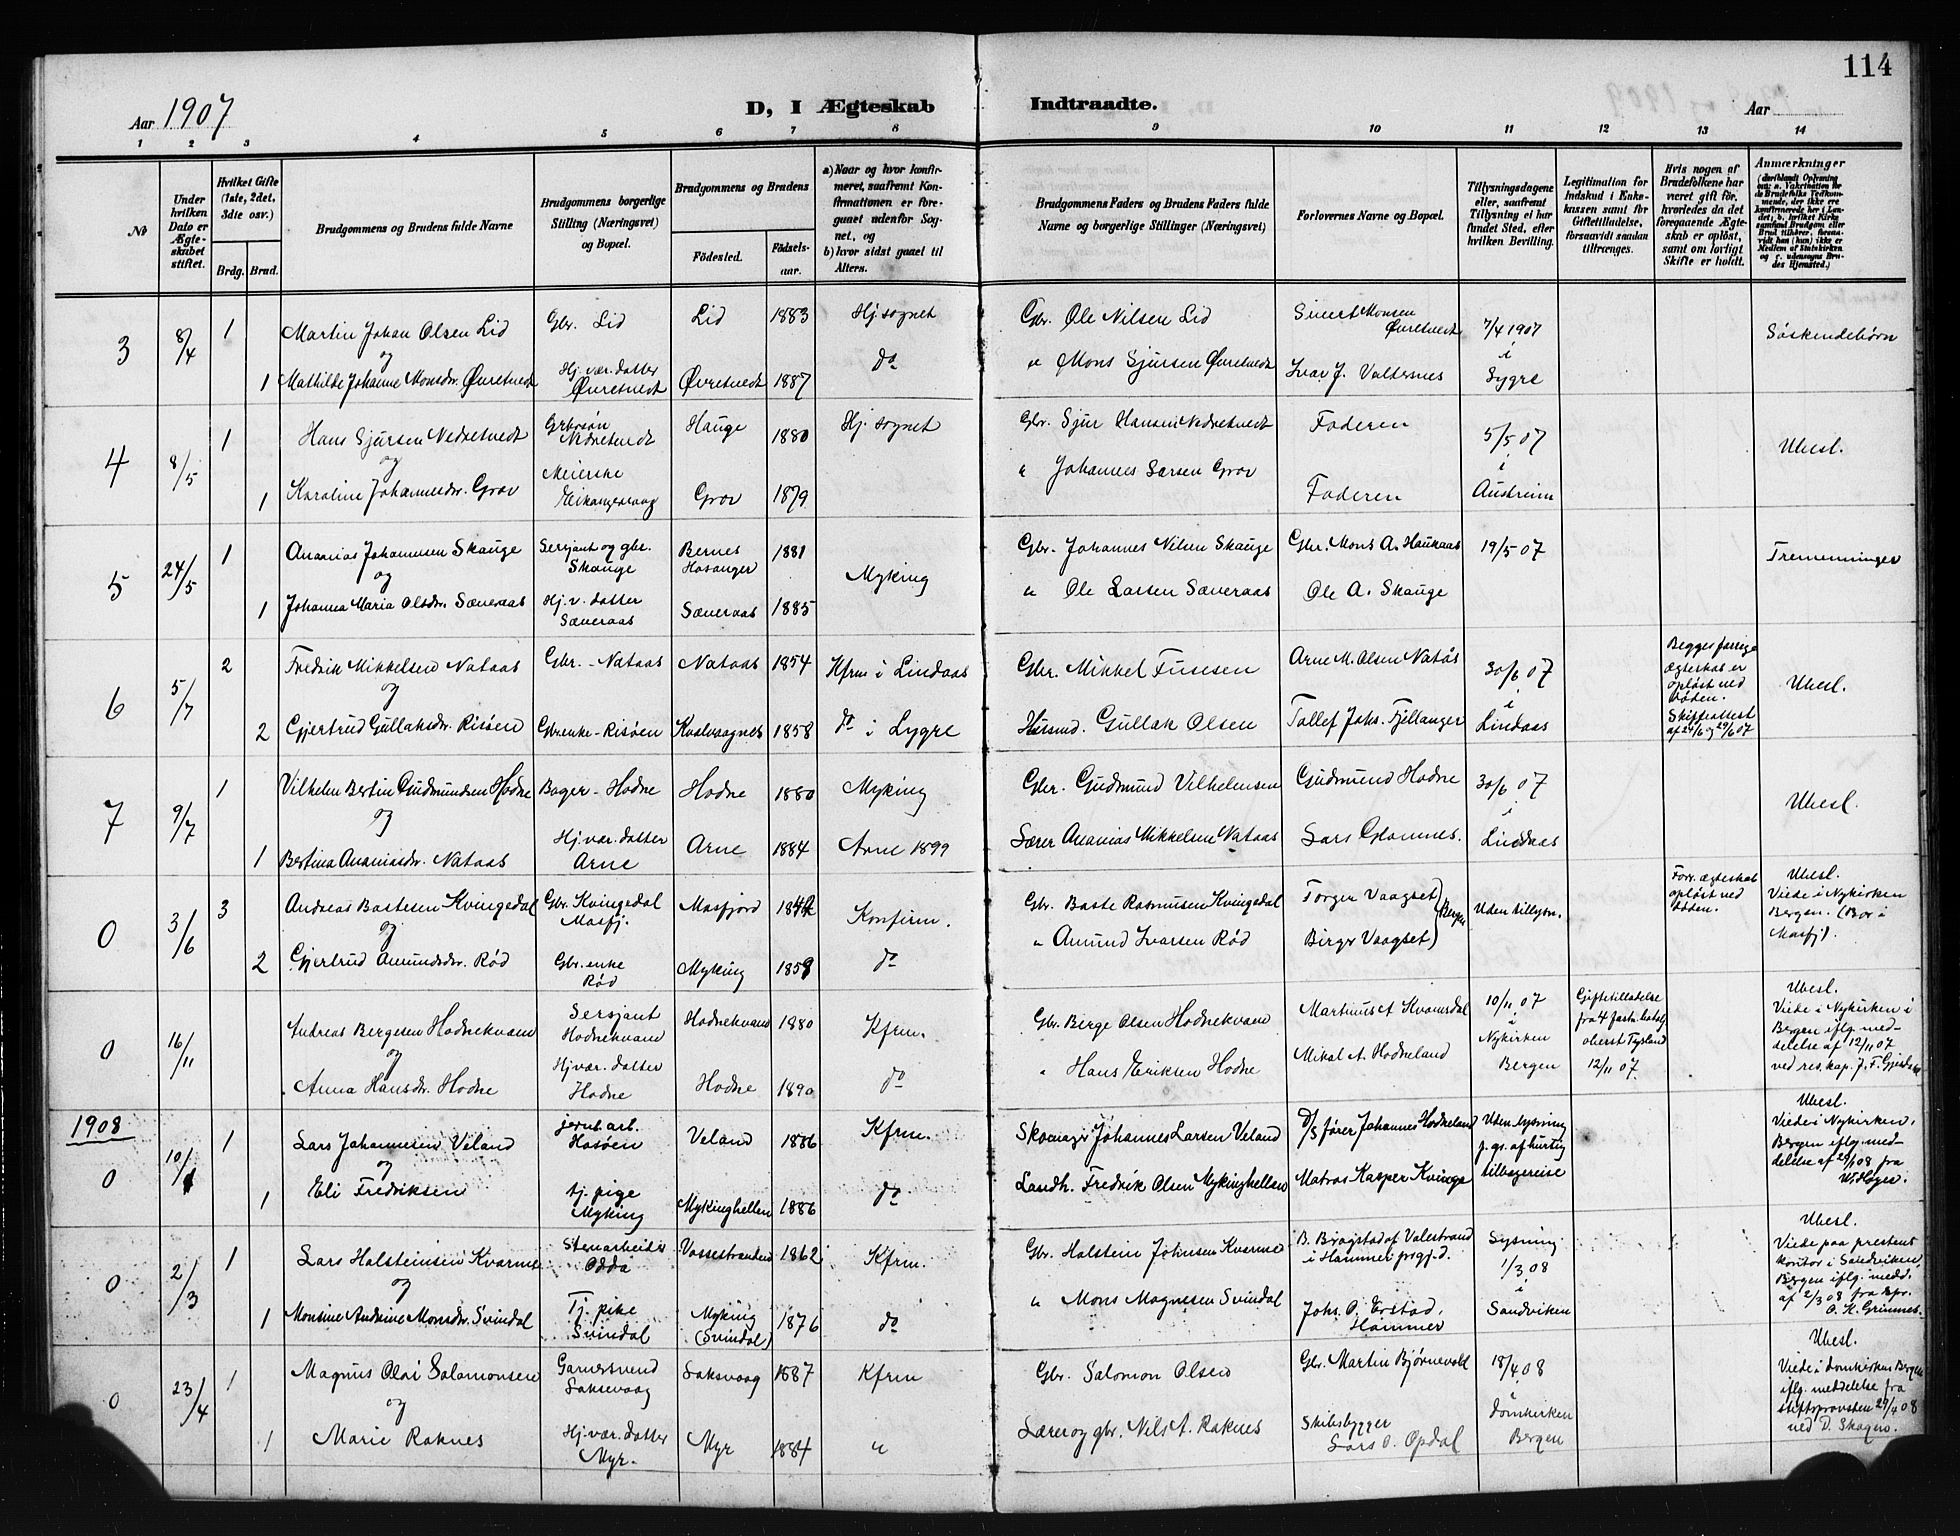 114
Aar 1907
D, I Ægteskab Indtraadte.
Aar
1 2 3 4 5 6 7 8 9 10 11 12 13 14
No
Under hvilken Dato er Ægteskabet stiftet.
Hvilket Gifte (1ste, 2det, 3die osv.)
Brdg. Brud.
Brudgommens og Brudens fulde Navne
Brudgommens borgerlige Stilling (Næringsvei) og Bopæl.
Brudgommens og Brudens
Fødested. Fødselsaar.
a) Naar og hvor konfirmeret, saafremt Konfirmationen er foregaaet udenfor Sognet, og
b) hvor sidst gaaet til Alters.
Brudgommens Faders og Brudens Faders fulde Navne og borgerlige Stillinger (Næringsvei)
Forlovernes Navne og Bopæl.
Tillysningsdagene eller, saafremt Tillysning ei har fundet Sted, efter hvilken Bevilling.
Legitimation for Indskud i Enkekassen samt for Giftetilladelse, forsaavidt saadan tiltrænges.
Hvis nogen af Brudefolkene har været gift før, hvorledes da det foregaaende Ægteskab er opløst, samt om lovligt Skifte er holdt.
Anmærkninger
3 8/4 1 Martin Johan Olsen Lid Gbr. Lid Lid 1883 Hj. sognet Gbr. Ole Nilsen Lid Sivert Monsen Øvretvedt 7/4 1907 Søskendebørn
og i
1 Mathilde Johanne Monsdr. Øvretvedt Hj. vær. datter Øvretvedt Øvretvedt 1887 do " Mons Sjursen Øvretvedt Ivar J. Valtersnes Lygre
4 8/5 1 Hans Sjursen Nedretvedt Gbrsøn Nedretvedt Hauge 1880 Hj. sognet Gbr. Sjur Hansen Nedretvedt Faderen 5/5 07 Ubesl.
og i
1 Karoline Johannesdr. Grov Meierske Eikangervaag Grov 1879 " Johannes Larsen Grov Faderen Austreim
5 24/5 1 Ananias Johannesen Skauge Sersjant og gbr. Skauge Bernes Hosanger 1881 Myking Gbr. Johannes Nilsen Skauge Gbr. Mons A. Haukaas 19/5 07 Tremenninger
og
1 Johanna Maria Olsdr. Sæveraas Hj. v. datter Sæveraas Sæveraas 1885 " Ole Larsen Sæveraas Ole A. Skauge
6 5/7 2 Fredrik Mikkelsen Nataas Gbr. - Nataas Nataas 1854 Kfrm i Lindaas Gbr. Mikkel Fusesen Arne M. Olsen Natås 30/6 07 Begges forrige ægteskab er opløst ved døden. Ubesl.
og i
2 Gjertrud Gullaksdr. Risöen Gbr.enke - Risöen Kvalvaagnes 1858 do i Lygre Husmd. Gullak Olsen Tollef Johs. Fjellanger Lindaas Skifteattest af 24/6 og 29/6 07
7 9/7 1 Vilhelm Bertin Gudmundsen Hodne Bager - Hodne Hodne 1880 Myking Gbr. Gudmund Vilhelmsen Gudmund Hodne 30/6 07 Ubesl.
og i
1 Bertina Ananiasdr. Nataas Hj. vær. datter Arne Arne 1884 Arne 1899 Lærer Ananias Mikkelsen Nataas Lars Glomnes. Lindaas
0 3/6 3 Andreas Bastesen Kvingedal Gbr. Kvingedal Masfj. Masfjord 1842 Konfirm. Gbr. Baste Rasmusen Kvingedal Torger Vaagset Bergen Uden tillysn. Forr. ægteskab opløst ved døden. Ubesl. Viede i Nykirken Bergen. (Bor i Masfj).
og
2 Gjertrud Amundsdr. Rød Gbr. enke Rød Myking 1859 do " Amund Ivarsen Rød Birger Vaagset
0 16/11 Andreas Bergesen Hodnekvam Sersjant Hodnekvam Hodnekvam 1880 Kfrm. Gbr. Berge Olsen Hodnekvam Martinus A Kvamsdal 10/11 07 Giftetilladelse fra 4 jæsk. batalj oberst Tysland 12/11 07. Ubesl. Viede i Nykirken i Bergen iflg. meddelelse af 12/11 07 ved res. kap. J. F.
og i Nykirken
Anna Hansdr. Hodne Hj vær. datter Hodne Hodne 1890 do " Hans Eriksen Hodne Mikal A. Hodneland Bergen
1908
0 10/1 1 Lars Johannesen Veland jernb.arb. Hosöen Veland 1886 Kfrm. Skomager Johannes Larsen Veland D/S fører Johannes Hodneland Uden lysning p. gr. af hurtig tilbagereise Ubesl. Viede i Nykirken, Bergen iflg. meddelelse af 29/1 08 fra
og
1 Eli Fredriksen tj. pige Myking Mykinghellen 1886 do Landh. Fredrik Olsen Mykinghellen Matros Kasper Kvinge
0 2/3 1 Lars Halsteinsen Kvarme Stenarbeider Odda Vossestranden 1862 Kfrm. Gbr. Halstein Johnsen Kvarme B. Brogstad af Valestrand i Hammer prgjd. Lysning 1/3 08 Ubesl. Viede paa prestens kontor i Sandviken, Bergen iflg. medd. af 2/3 08 fra spr. O. K. Grimnes.
og i
1 Monsine Andrine Monsdr. Svindal Tj. pike Svindal Myking (Svindal) 1876 do " Mons Magnesen Svindal Johs. O. Erstad, Hammer Sandviken
0 23/4 1 Magnus Olai Salomonsen Garversvend Saksevaag Saksvaag 1887 Kfrm Gbr. Salomon Olsen Gbr. Martin Bjørnevold 18/4 08 Ubesl. Viede i domkirken Bergen iflg. meddelelse fra stiftsprovsten 29/4 08 ved D. Skagen.
og
1 Marie Raknes Hj. vær. datter Myr. Myr 1884 " Lærer og gbr. Nils A. Raknes Skibsbygger Lars O. Opdal Domkirken Bergen